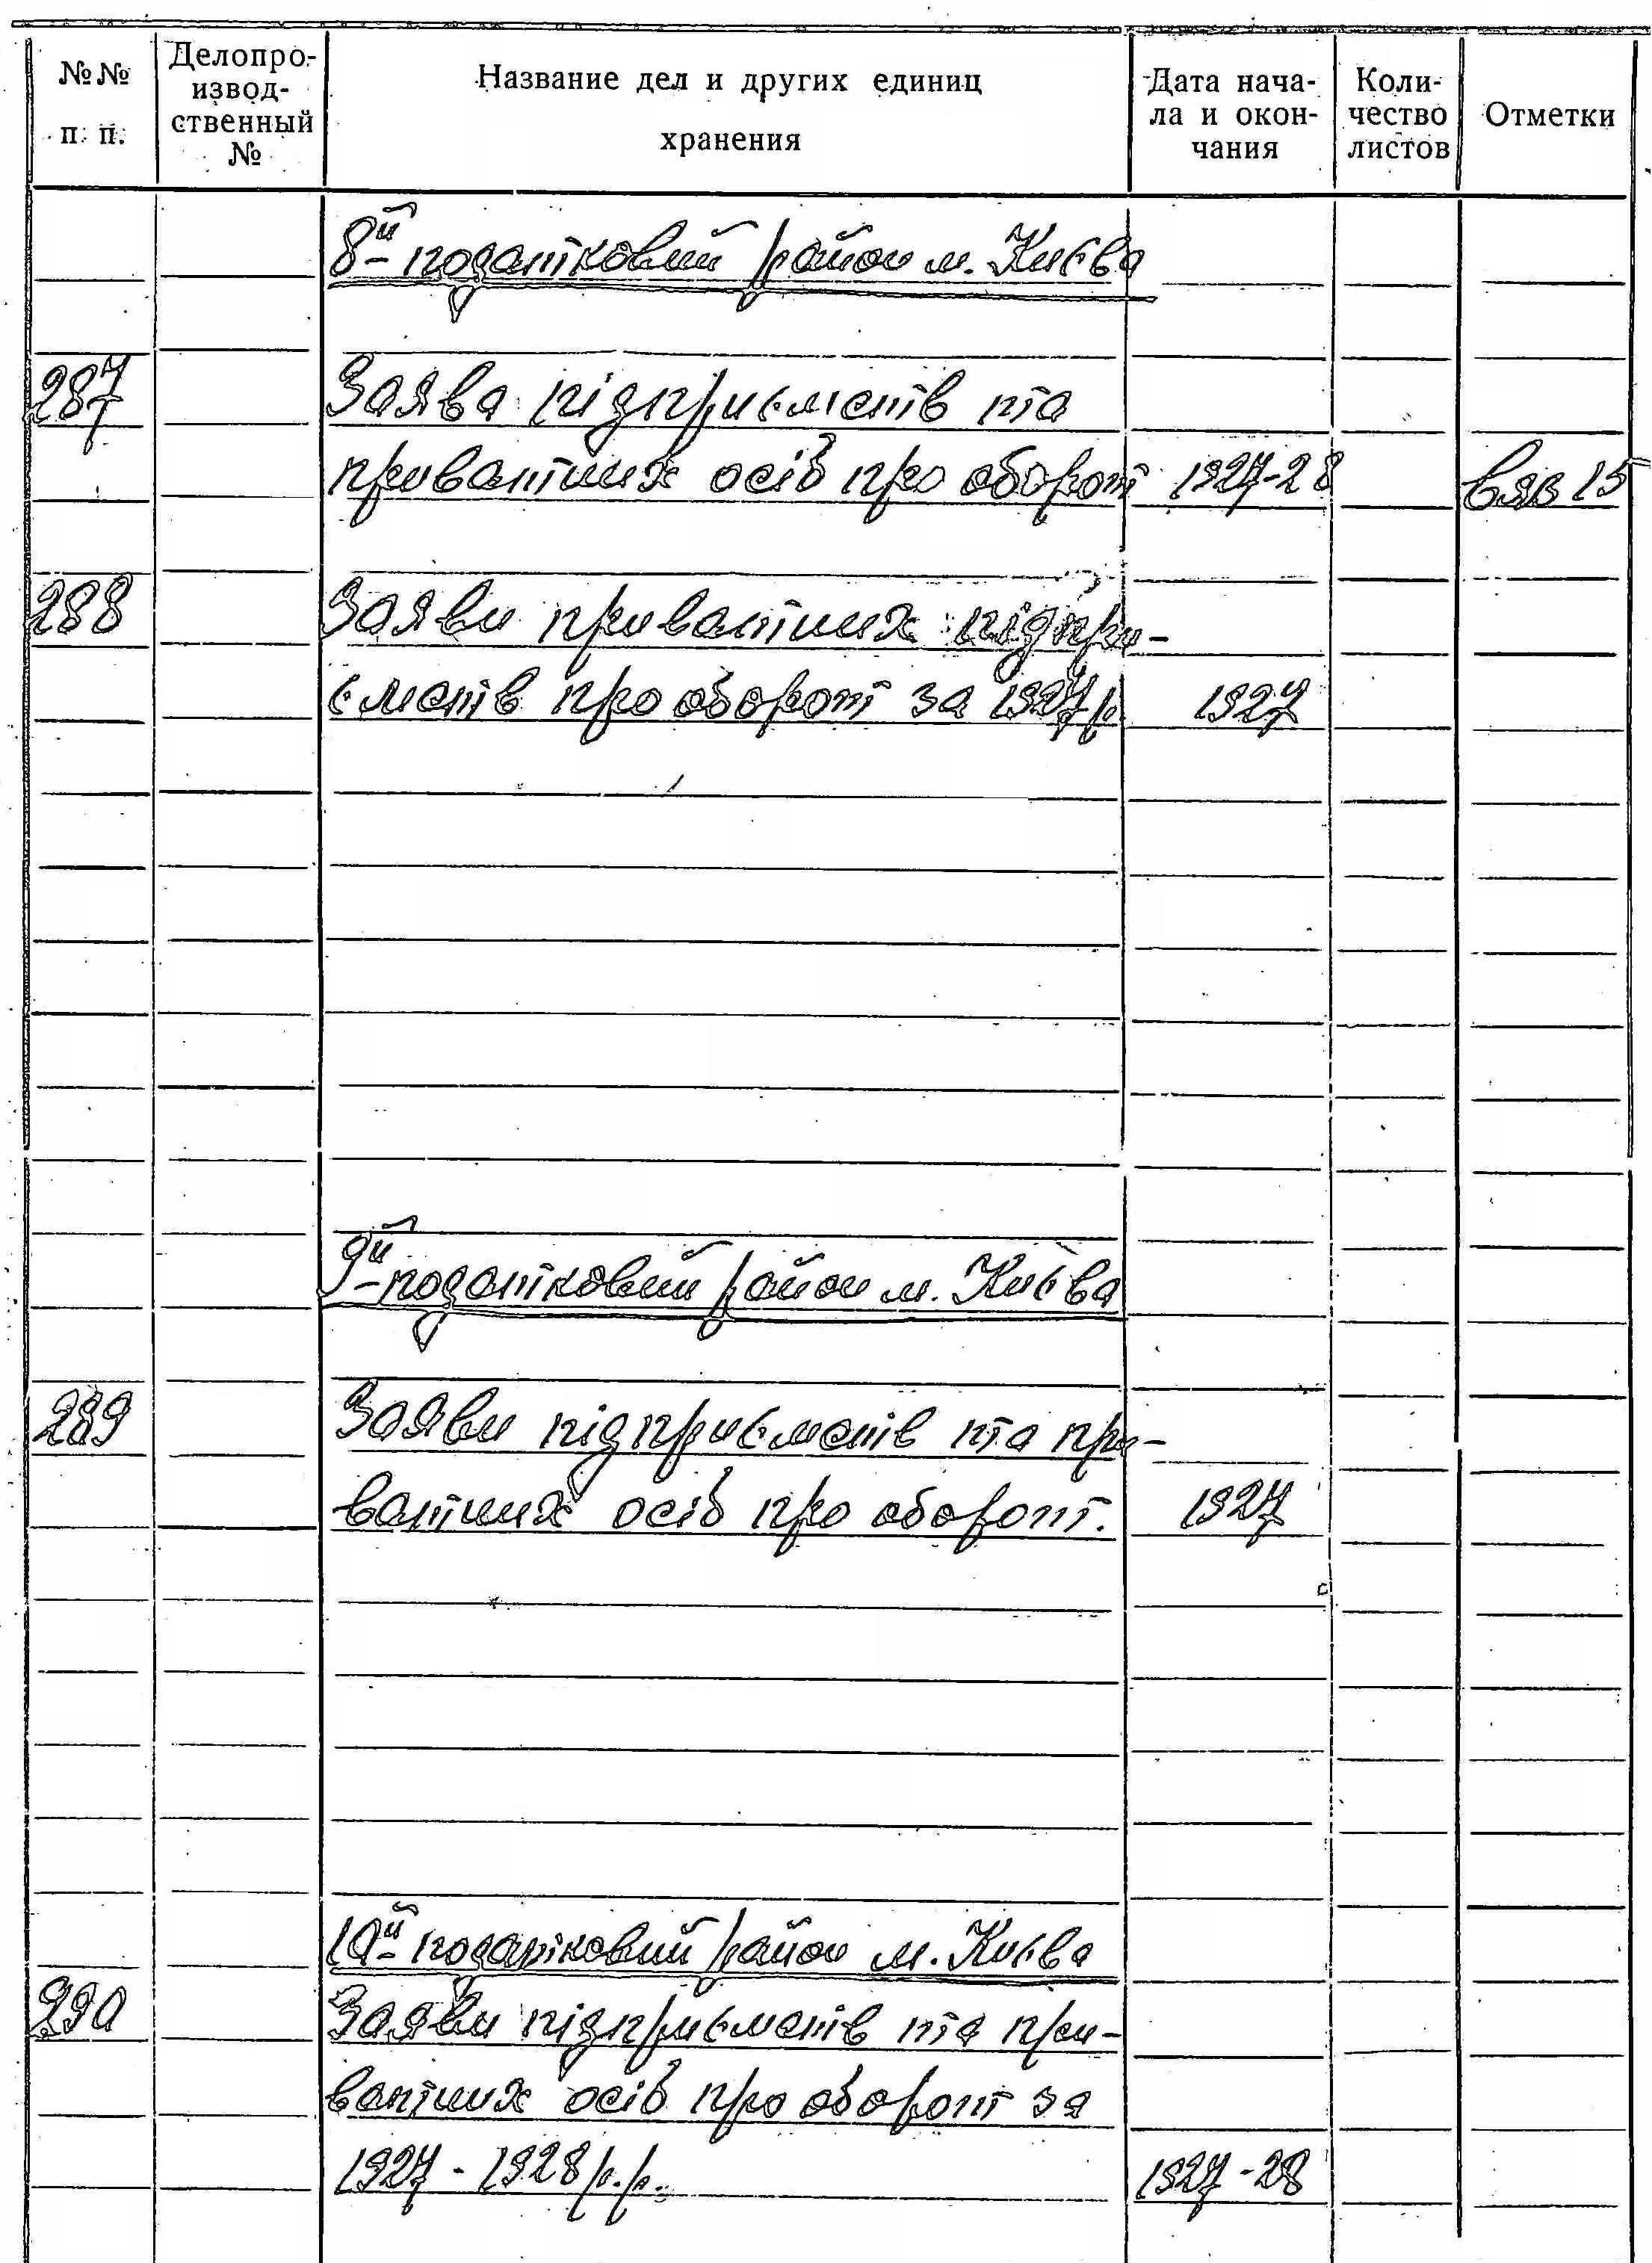 №№ п. п.
Делопро-
извод-
ственный
№
Название дел и других единиц
хранения
Дата нача-
ла и окон-
чания
Коли-
чество
листов
Отметки
8й податковий район м. Києва
287 Заява підприємств та
приватних осіб про оборот 1927-28 вяз 15
288 Заяви приватних підпри-
ємств про оборот за 1927 р. 1927
9й податковий район м. Києва
289 Заяви підприємств та при-
ватних осіб про оборот. 1927
10й податковий район м. Києва
290 Заяви підприємств та при-
ватних осіб про оборот за
1927 - 1928 р.р. 1927-28